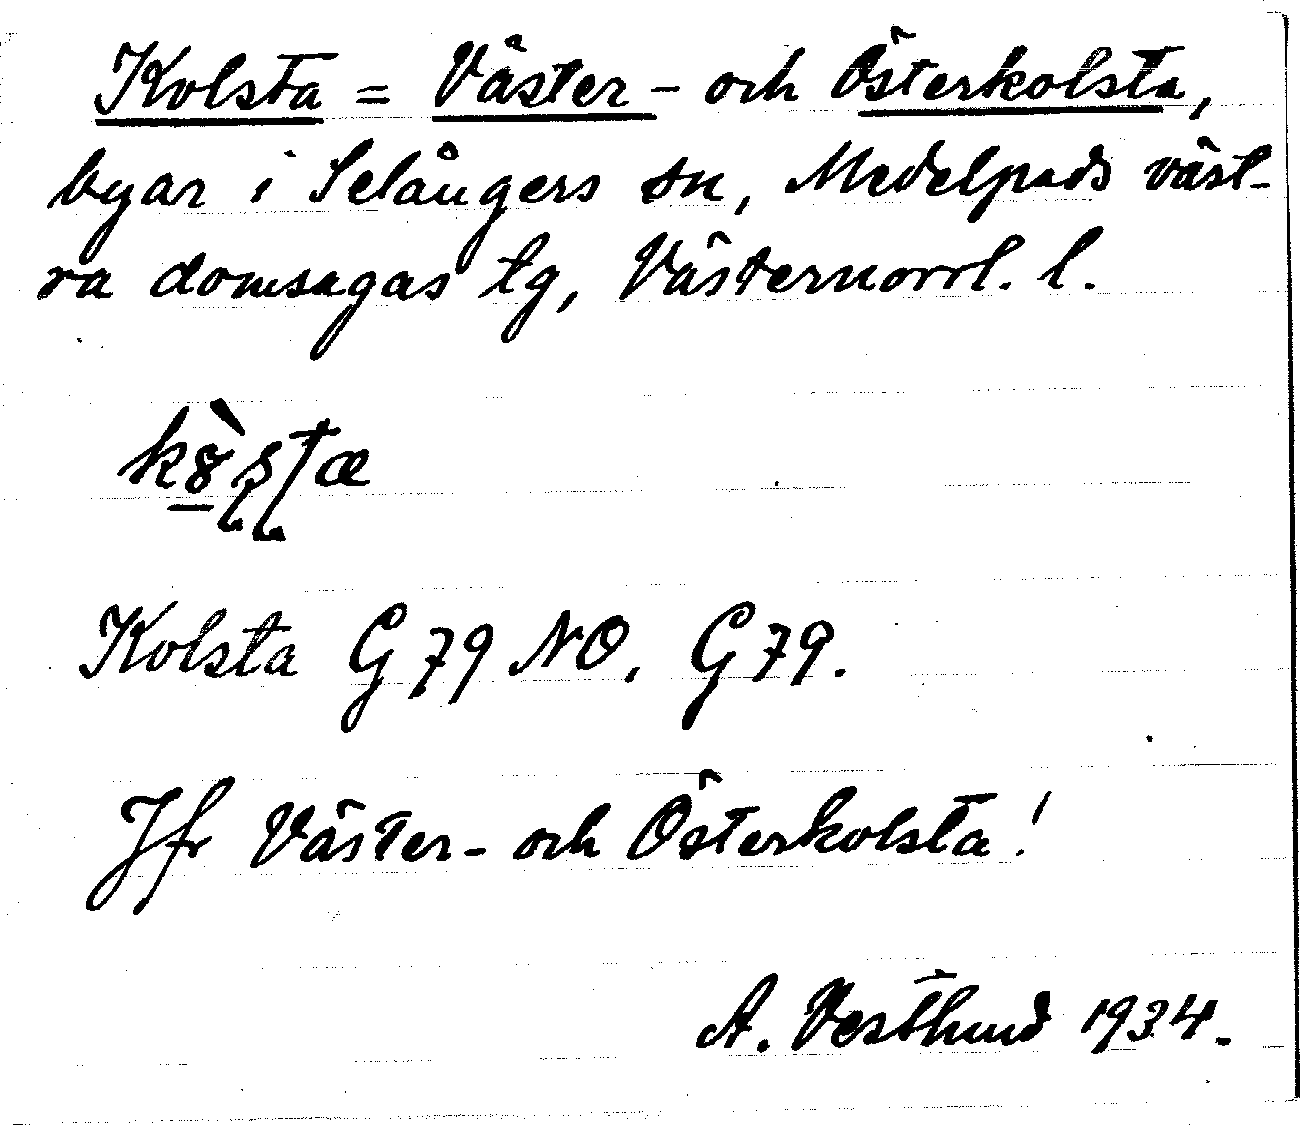 Kolsta = Väster- och Österkolsta,
byar i Selångers sn, Medelpads väst-
ra domsagas tg, Västernorrl. l.
kȣ̀ʂʈæ
Kolsta G 79 NO, G 79.
Jfr Väster- och Österkolsta!
A. Vestlund 1934.